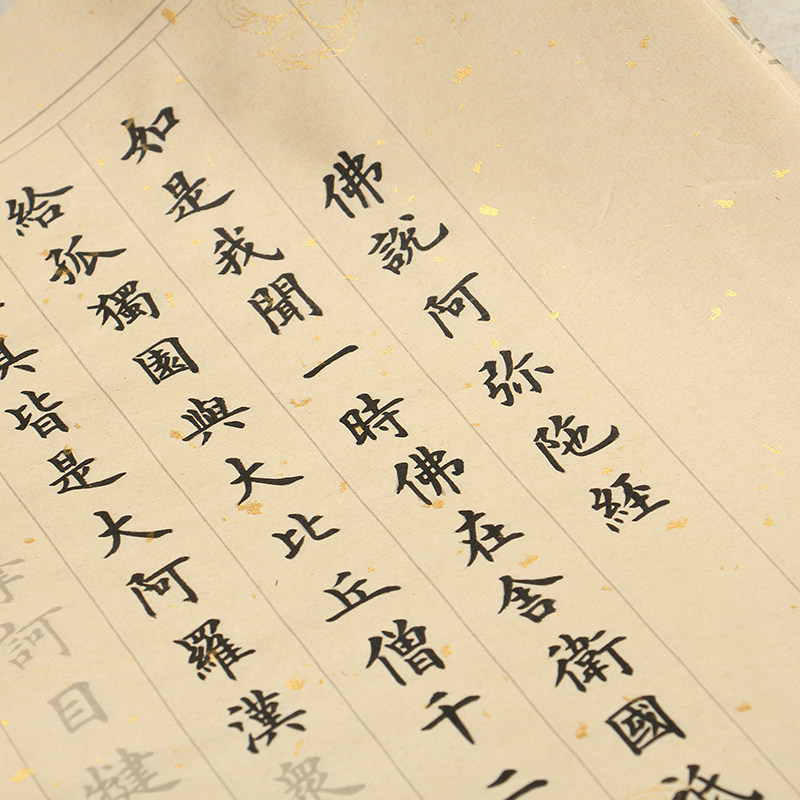 佛說阿弥陀経
如是我聞一時佛在舍衛國祇
給孤獨園與大比丘僧千二
俱皆是大阿羅漢衆
訶目犍